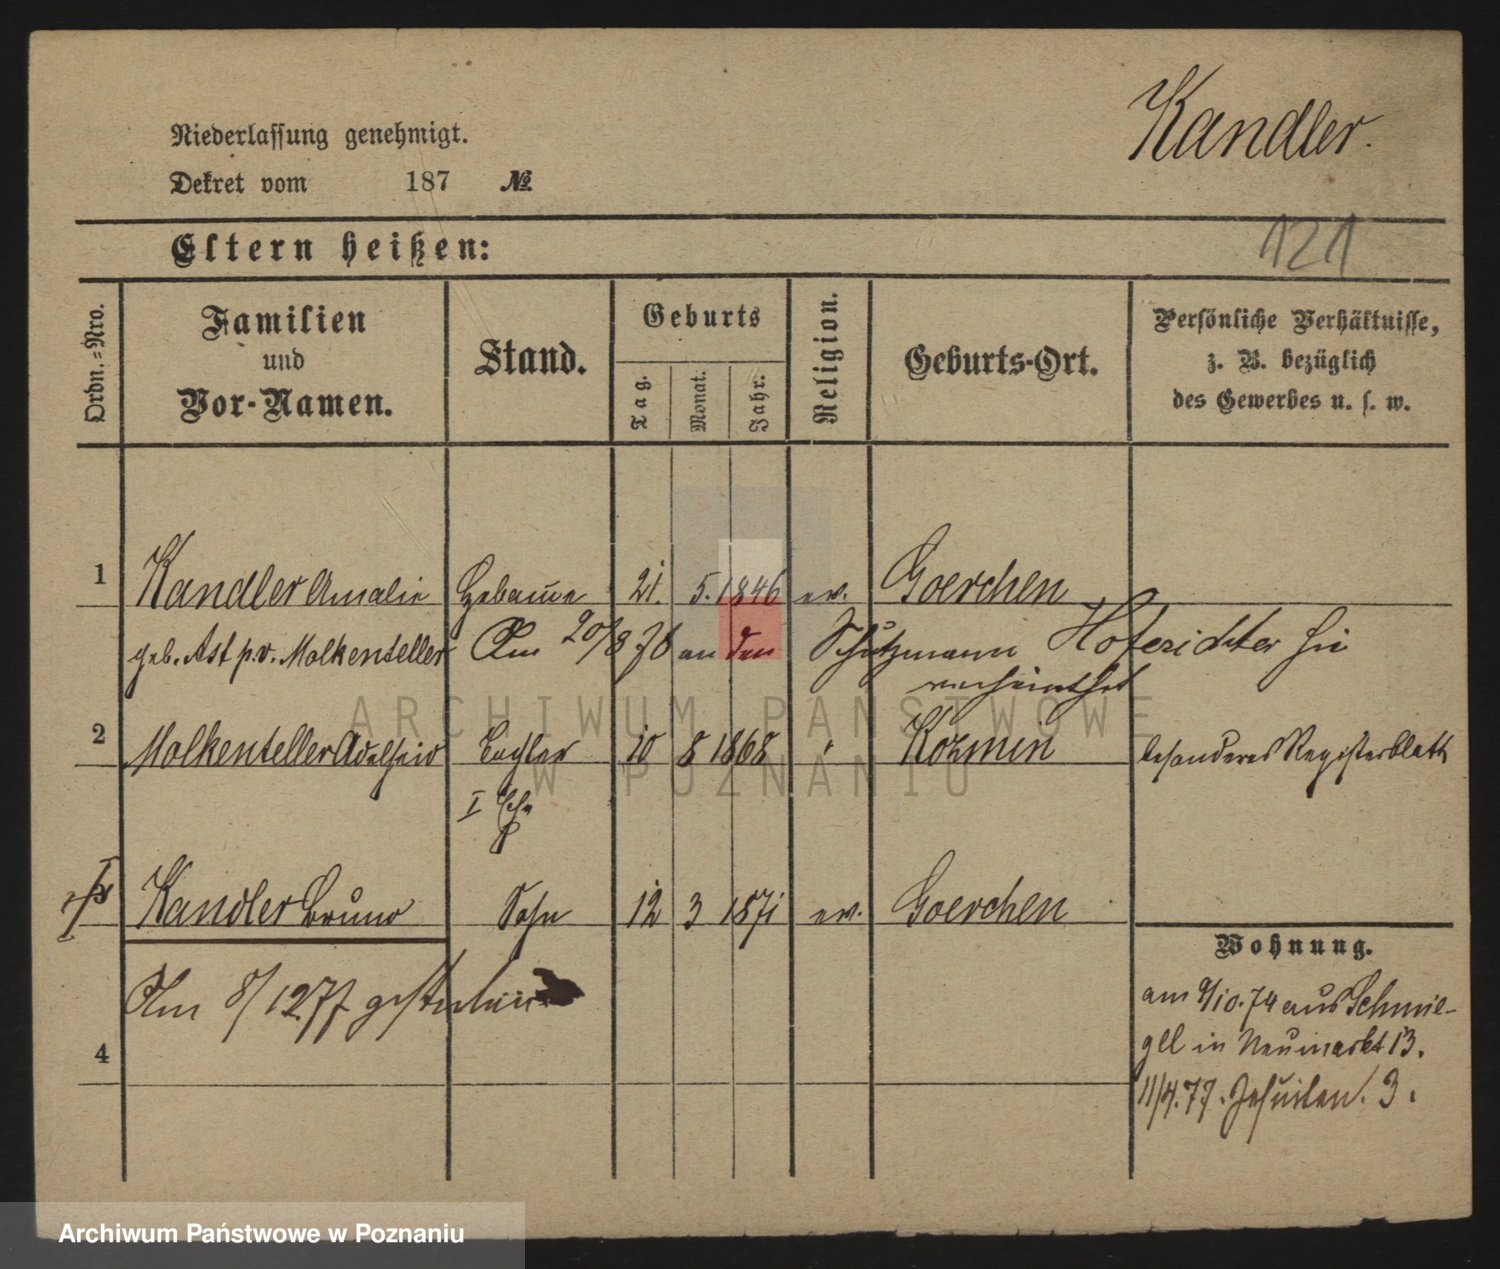 Kandler.
Niederlassung genehmigt.
Dekret vom 187 №
121
Eltern heißen:
Ordn.=Nro.
Familien
und
Vor-Namen.
Stand.
Geburts
Tag.
Monat.
Jahr.
Religion.
Geburts-Ort.
Persönliche Verhältnisse,
z. B. bezüglich
des Gewerbes u. s. w.
1 Kandler Amalie Hebamme 21. 5. 1846 ev. Goerchen
geb. Ast p.v. Molkenteller Am 20/8 76 an den Schutzmann Hoferichter hie
verheirathet
2 Molkenteller Adelheid Tochter 10 8 1868 " Kozmin besonderes Registerblatt
I Ehe
Kandler Bruno Sohn 12 3 1871 ev. Goerchen
Am 8/12 77 gestorben
4
Wohnung.
am 9/10.74 aus Schmie-
gel in Neumarkt 13.
11/4.77. Jesuiten. 3.
ARCHIWUM PAŃSTWOWE
W POZNANIU
Archiwum Państwowe w Poznaniu